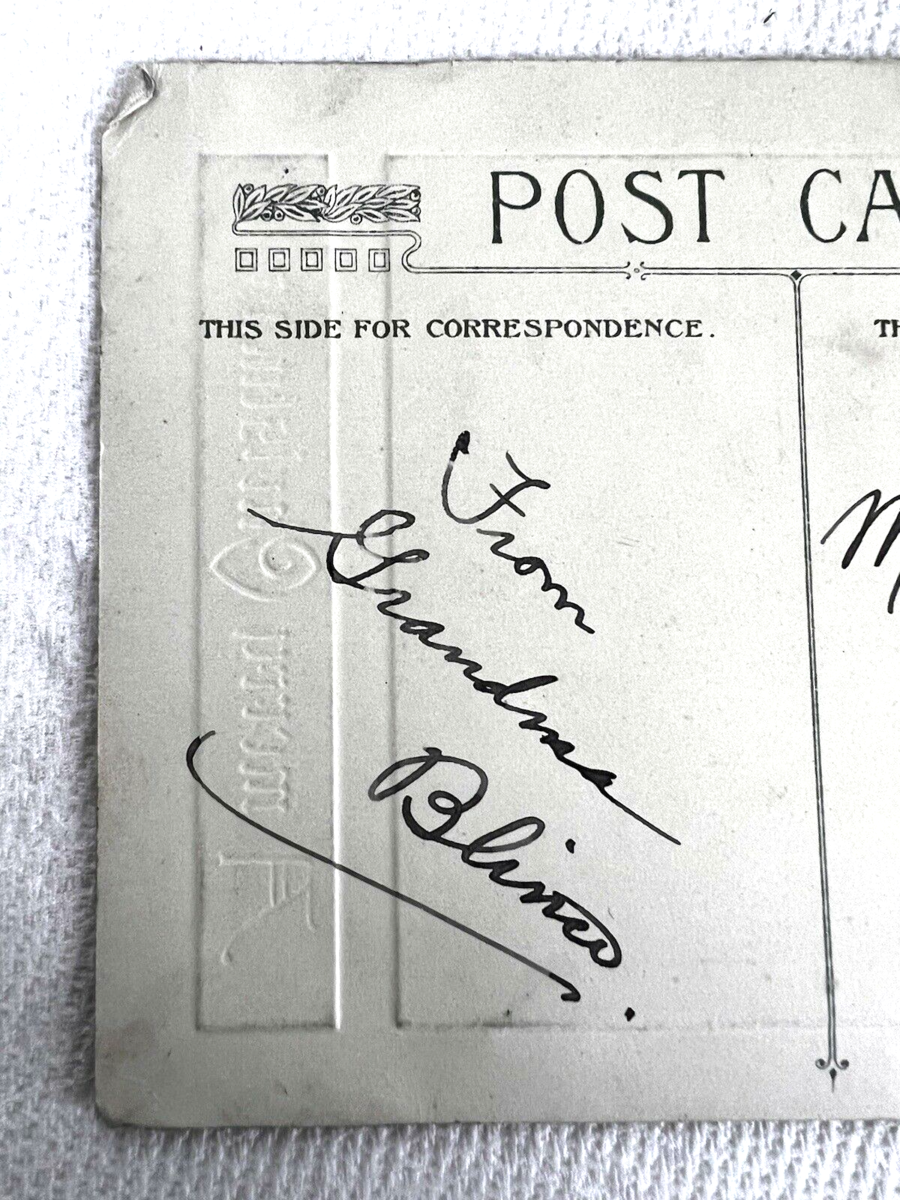 POST CA
THIS SIDE FOR CORRESPONDENCE.
TH
From
Grandma
M